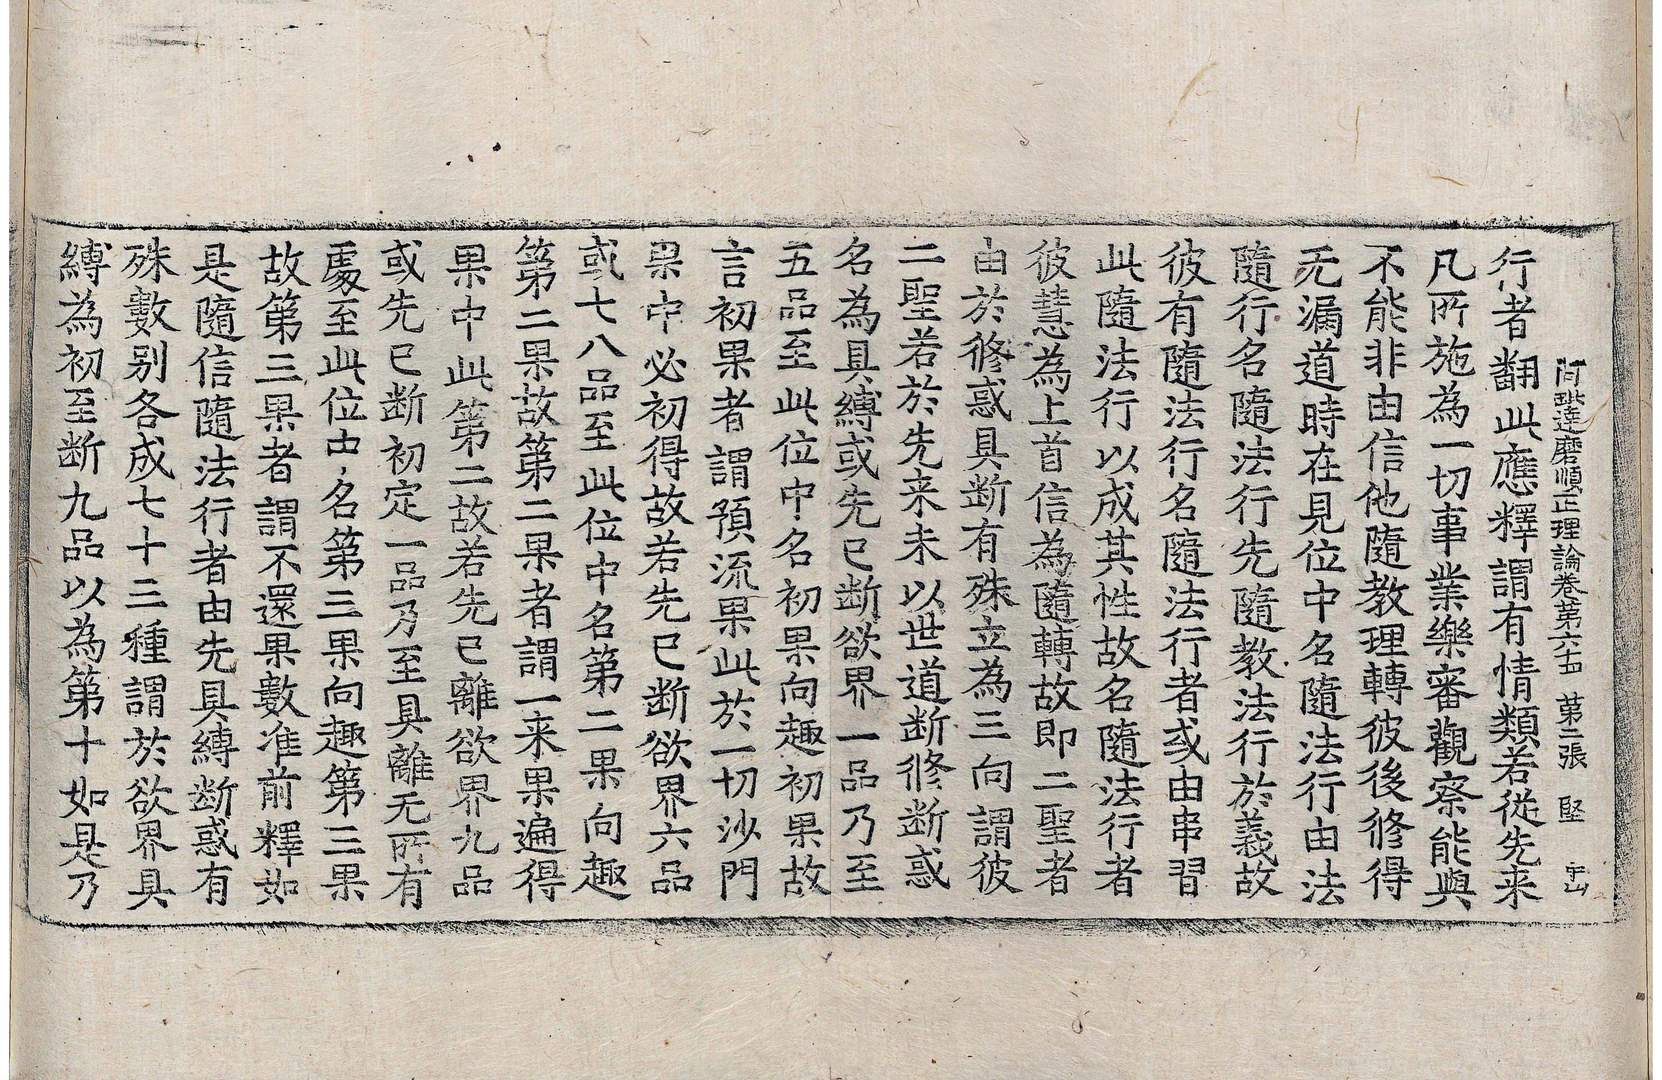 阿毗達磨順正理論卷第六十五 第二張 堅
行者翻此應釋謂有情類若從先来
凡所施為一切事業樂審觀察能與
不能非由信他隨教理轉彼後修得
无漏道時在見位中名隨法行由法
隨行名隨法行先隨教法行於義故
彼有隨法行名隨法行者或由串習
此隨法行以成其性故名隨法行者
彼慧為上首信為隨轉故即二聖者
由於修惑具断有殊立為三向謂彼
二聖若於先来未以世道断修断惑
名為具縛或先已断欲界一品乃至
五品至此位中名初果向趣初果故
言初果者謂預流果此於一切沙門
果中必初得故若先已断欲界六品
或七八品至此位中名第二果向趣
第二果故第二果者謂一来果遍得
果中此第二故若先已離欲界九品
或先已断初定一品乃至具離无所有
處至此位中名第三果向趣第三果
故第三果者謂不還果數准前釋如
是隨信隨法行者由先具縛断惑有
殊數别各成七十三種謂於欲界具
縛為初至断九品以為第十如是乃